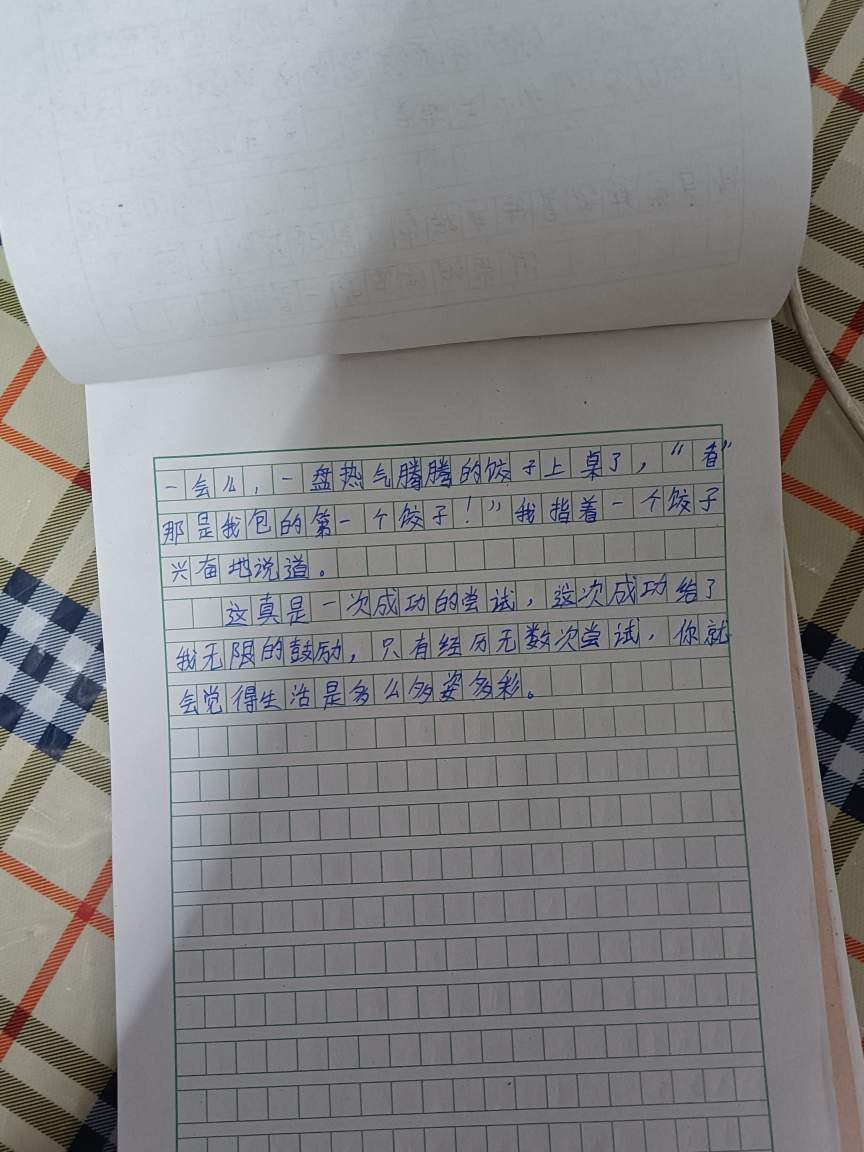 一会儿，一盘热气腾腾的饺子上桌了，“看”
那是我包的第一个饺子！”我指着一个饺子
兴奋地说道。
这真是一次成功的尝试，这次成功给了
我无限的鼓励，只有经历无数次尝试，你就
会觉得生活是多么多姿多彩。